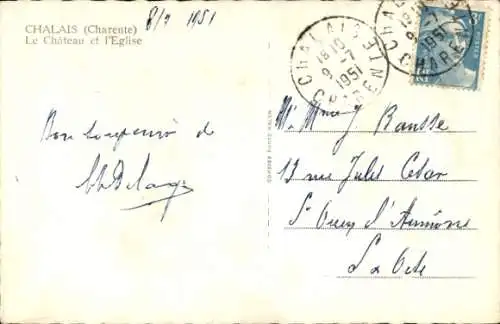 CHALAIS (Charente)
Le Château et l'Eglise
8/7 1951
CHALAIS
18H10
9-7
1951
CHARENTE
CHALAIS
9-7
1951
CHARENTE
Bon souvenir de
M. Mme J. Bausse
13 rue Jules César
St Ouen l'Aumône
S & Oise